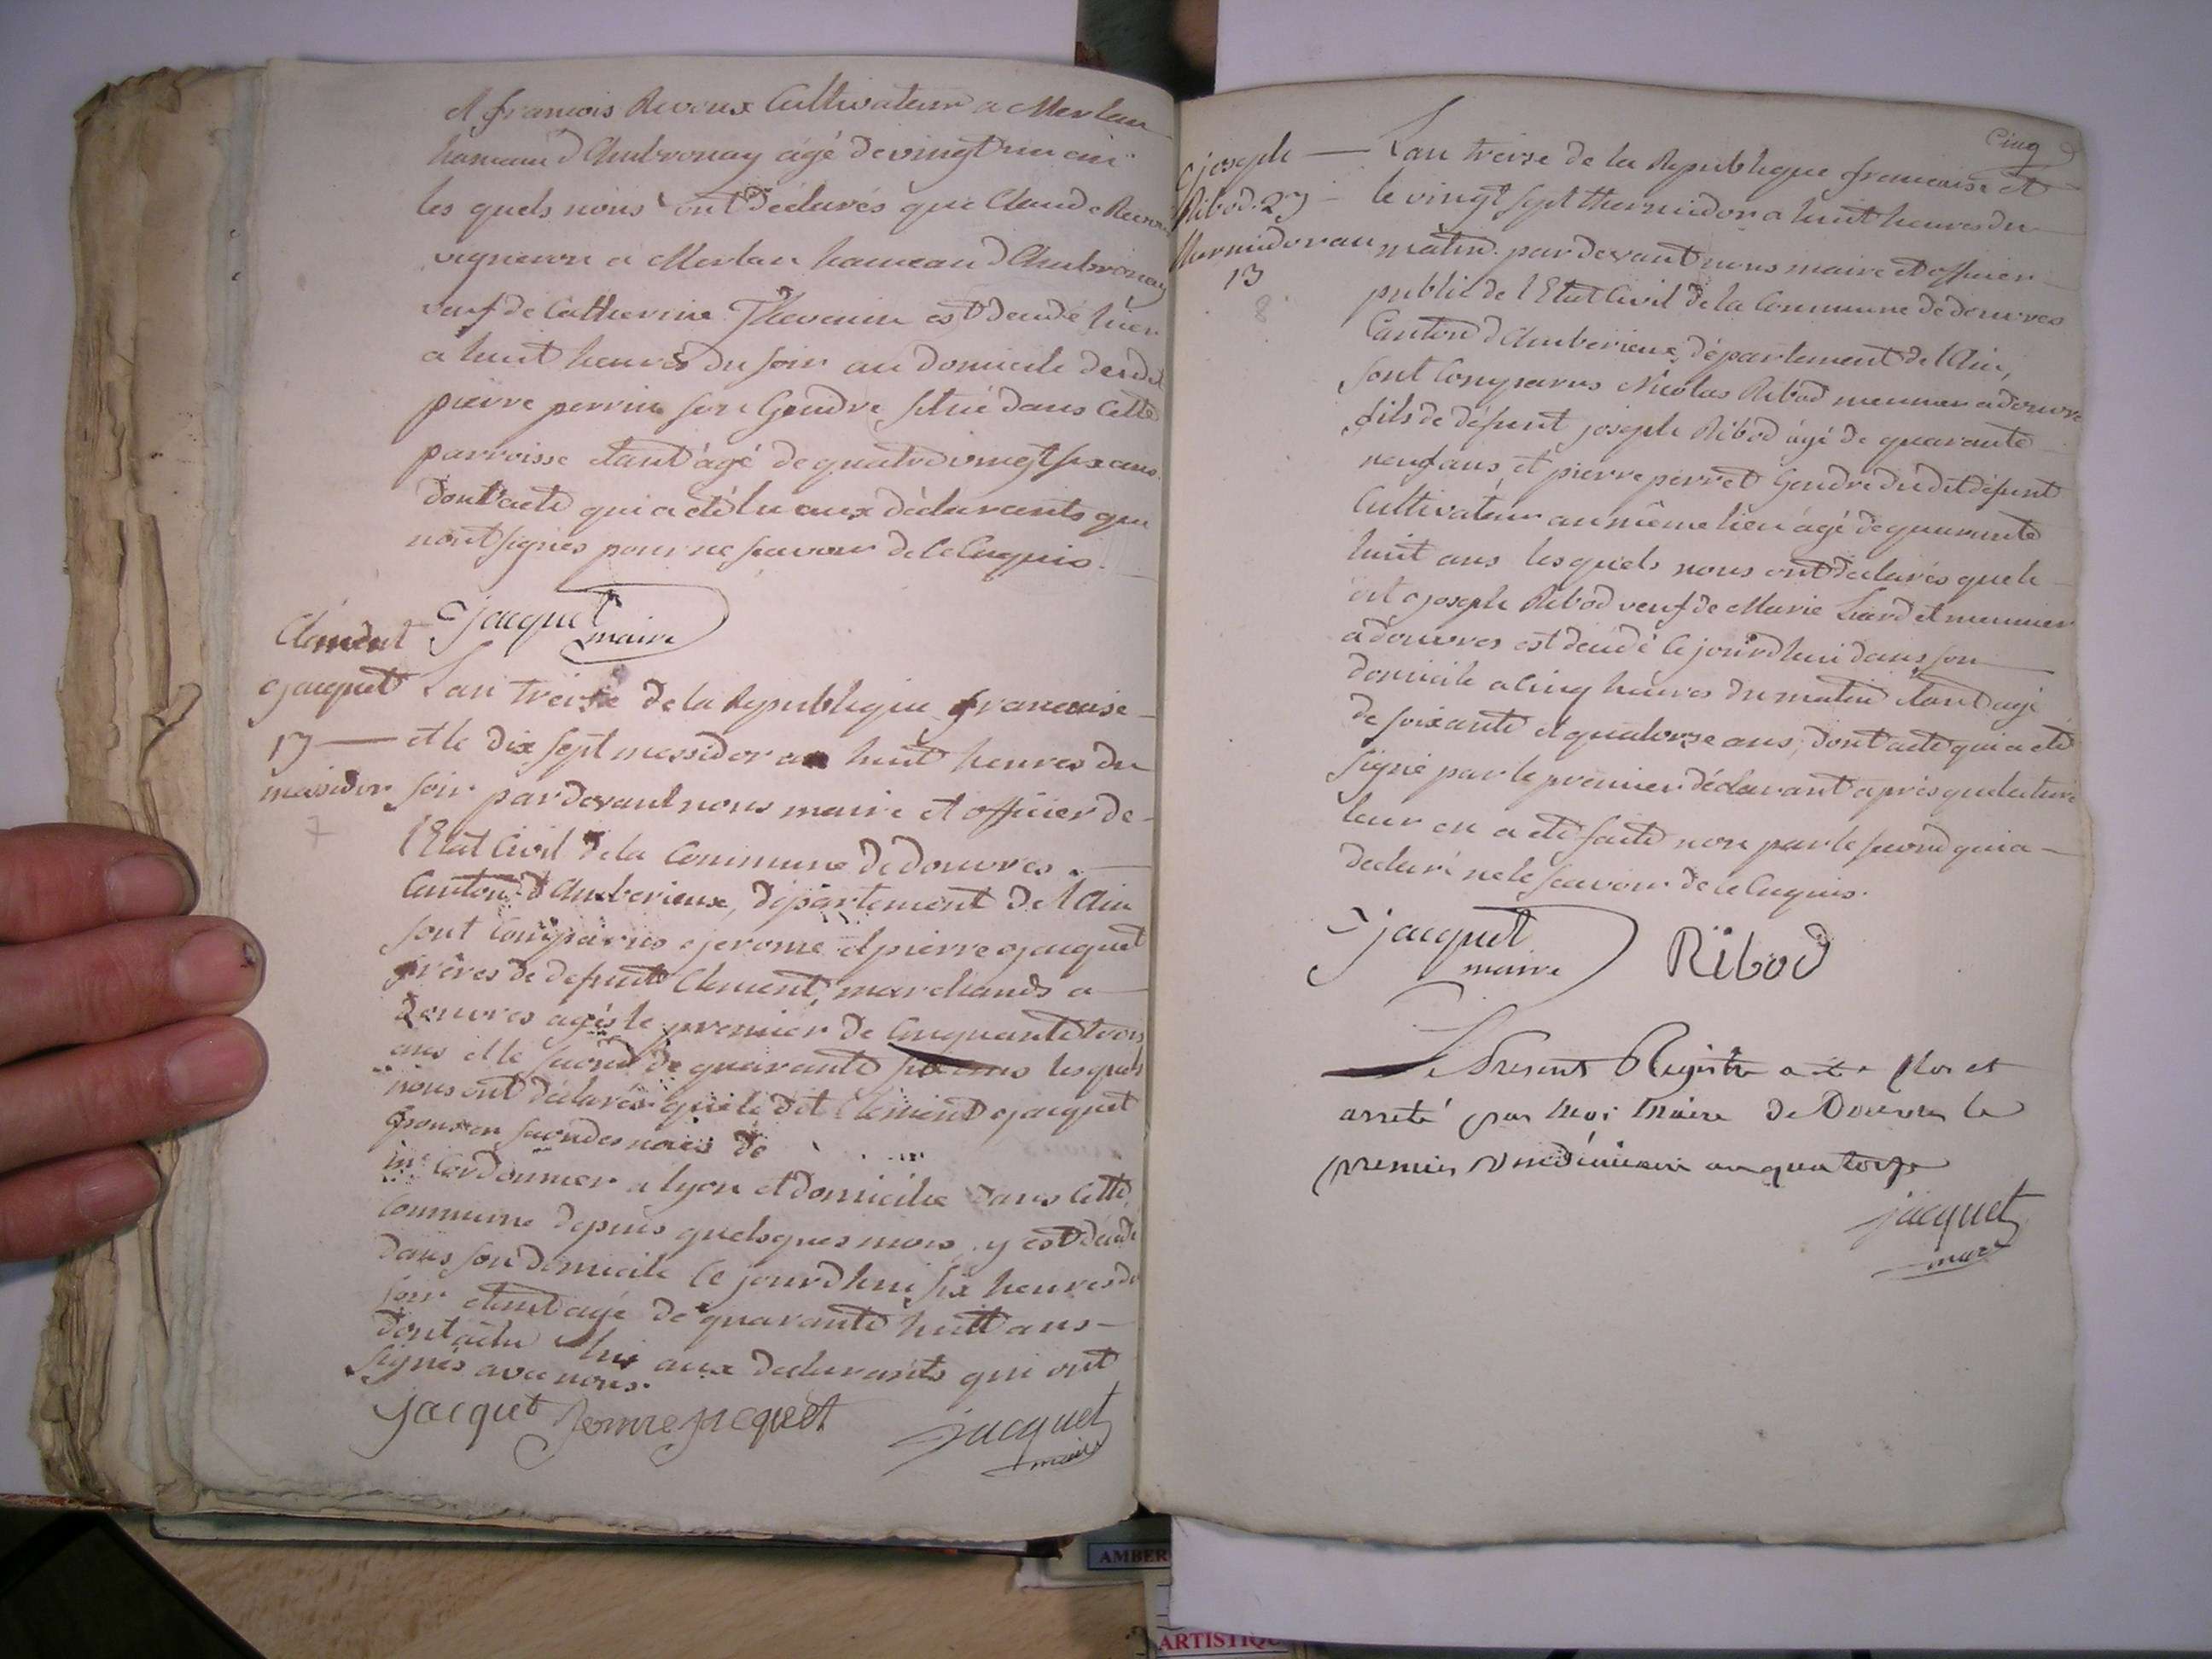 et francois Revoux Cultivateur a Merlan
hameau d'Ambronay agé de vingt cinq ans
les quels nous ont déclarés que Claude Revoux
vigneron a Merlan hameau d'Ambronay
veuf de Catherine Thevenin est décédé hier
a huit heures du soir au domicile dudit
pierre perrin son Gendre situé dans Cette
parroisse etant agé de quatre vingt six ans
dont acte qui a eté lu aux déclarants qui
n'ont signés pour ne scavoir de ce Enquis.
Jacquet
maire
Clément
Jacquet
17
messidor
7
L'an treize de la Republique francaise
et le dix sept messidor a huit heures du
soir par devant nous maire et officier de
l'Etat Civil de la Commune de douvres
Canton d'Amberieux, département de l'Ain
sont Comparus jerome et pierre jacquet
frères de defunt Clement, marchands a
douvres agés le premier de Cinquante trois
ans et le second de quarante six ans lesquels
nous ont déclarés que le dit Clement jacquet
epoux en secondes noces de
me Cordonnier a lyon et domicilié dans Cette
Commune depuis quelsques mois, y est décédé
dans son domicile Ce jourd'hui six heures du
soir etant agé de quarante huit ans
dont acte lu aux declarants qui ont
signés avec nous.
jacquet Jerome jacquet
jacquet
maire
Cinq
joseph
Ribod. 27
thermidor an
13
8
L'an treize de la Republique francaise et
le vingt sept thermidor a huit heures du
matin. par devant nous maire et officier
public de l'Etat Civil de la Commune de douvres
Canton d'Amberieux, département de l'Ain,
sont Comparus Nicolas Ribod meunier a douvres
fils de défunt joseph Ribod agé de quarante
neuf ans, et pierre perret Gendre dudit défunt
Cultivateur au même lieu agé de quarante
huit ans lesquels nous ont déclarés que le
dit joseph Ribod veuf de Marie Liardet meunier
a douvres est décédé Ce jourd'hui dans son
domicile a Cinq heures du matin etant agé
de soixante et quatorze ans, dont acte qui a eté
signé par le premier déclarant après que lecture
leur en a eté faite non par le second qui a
declaré ne le scavoir de ce Enquis.
Jacquet
maire
Ribod
Le present Registre a ete clos et
arreté par moi maire De Douvres le
premier vendémiaire an quatorze
jacquet
maire
AMBER
ARTISTIQU